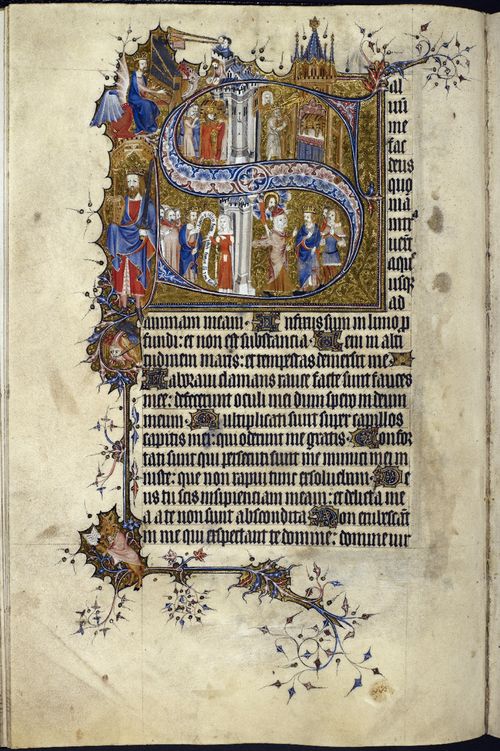 S al
uū
me
fac
deus
quo
niā
intͣ
uerūt
aque
usque
ad
animam meam. Infixus sum in limo p
fundi: et non est substantia. Ueni in alti
tudinem maris: et tempestas demersit me.
Laboraui clamans rauce facte sunt fauces
mee: defecerunt oculi mei dum spero in deum
meum. Multiplicati sunt super capillos
capitis mei: qui oderunt me gratis. Confor
tati sunt qui persecuti sunt me inimici mei in
iuste: que non rapui tunc exsoluebam. De
us tu scis insipienciam meam: et delicta me
a a te non sunt abscondita. Non erubescāt
in me qui expectant te domine: domine uir